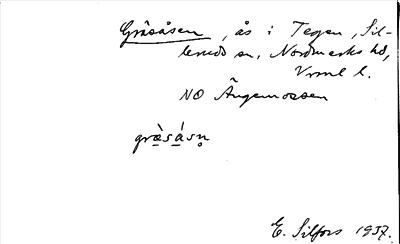 Gråsåsen, ås i Tegen, Sil-
leruds sn, Nordmarks hd,
Vrml l.
NO Ängemossen
grå̀sǻsn̥
E. Silfors 1937.